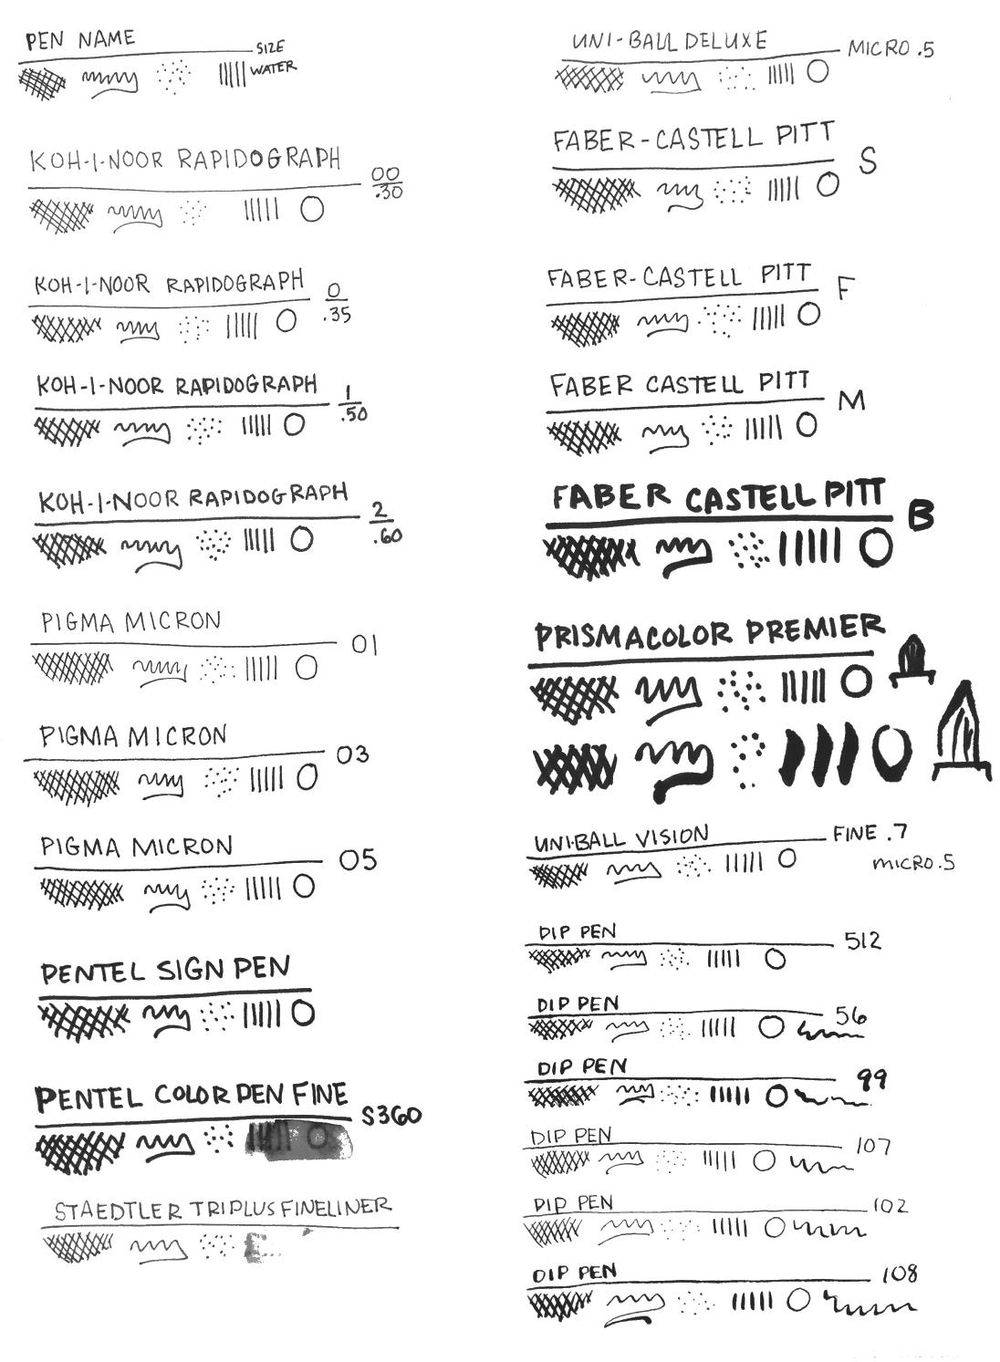 PEN NAME
SIZE
WATER
KOH-I-NOOR RAPIDOGRAPH
00
.30
KOH-I-NOOR RAPIDOGRAPH
0
.35
KOH-I-NOOR RAPIDOGRAPH
1
.50
KOH-I-NOOR RAPIDOGRAPH
2
.60
PIGMA MICRON
01
PIGMA MICRON
03
PIGMA MICRON
05
PENTEL SIGN PEN
PENTEL COLOR PEN FINE
S360
STAEDTLER TRIPLUS FINELINER
UNI-BALL DELUXE
MICRO .5
FABER-CASTELL PITT
S
FABER-CASTELL PITT
F
FABER CASTELL PITT
M
FABER CASTELL PITT
B
PRISMACOLOR PREMIER
UNI-BALL VISION
FINE .7
MICRO .5
DIP PEN
512
DIP PEN
56
DIP PEN
99
DIP PEN
107
DIP PEN
102
DIP PEN
108